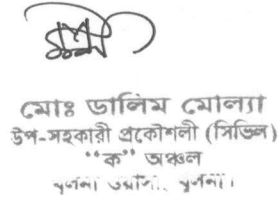 মোঃ ডালিম মোল্যা
উপ-সহকারী প্রকৌশলী (সিভিল)
“ক” অঞ্চল
খুলনা ওয়াসা, খুলনা।